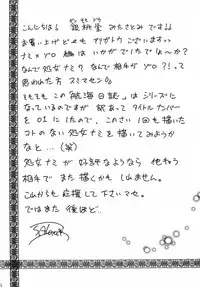 こんにちは! 銀桃堂 みたさとみ です!!
お買い上げどーも アリガトウ ございますっっ
ナミ×ゾロ 編は いかがでしたでしょーか?
なんで処女ナミ? なんで相手がゾロ?!って
思われた方 スミマセンっ
そもそもこの「航海日誌」は シリーズに
なっているのですが 訳あって タイトルナンバー
を0に1たので、このさい 1回も描いた
コトのない処女ナミを描いてみようか
なと…(笑)
処女ナミが 好評なようなら 他わう
相手で また描くかもしれません。
これからも応援して下さいマセ。
ではまた 後ほど…